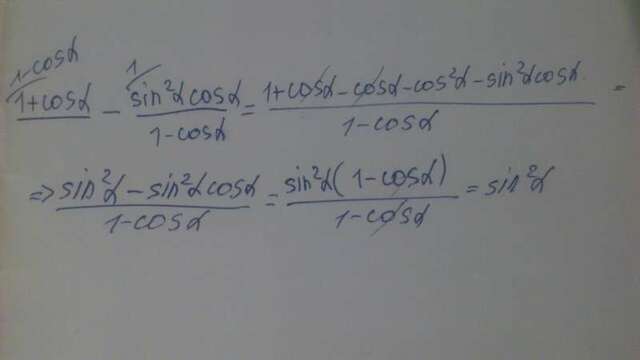 1-cosα 1
1+cosα - sin²α cosα / 1-cosα = 1+cosα-cosα-cos²α-sin²αcosα / 1-cosα =
=> sin²α-sin²αcosα / 1-cosα = sin²α(1-cosα) / 1-cosα = sin²α